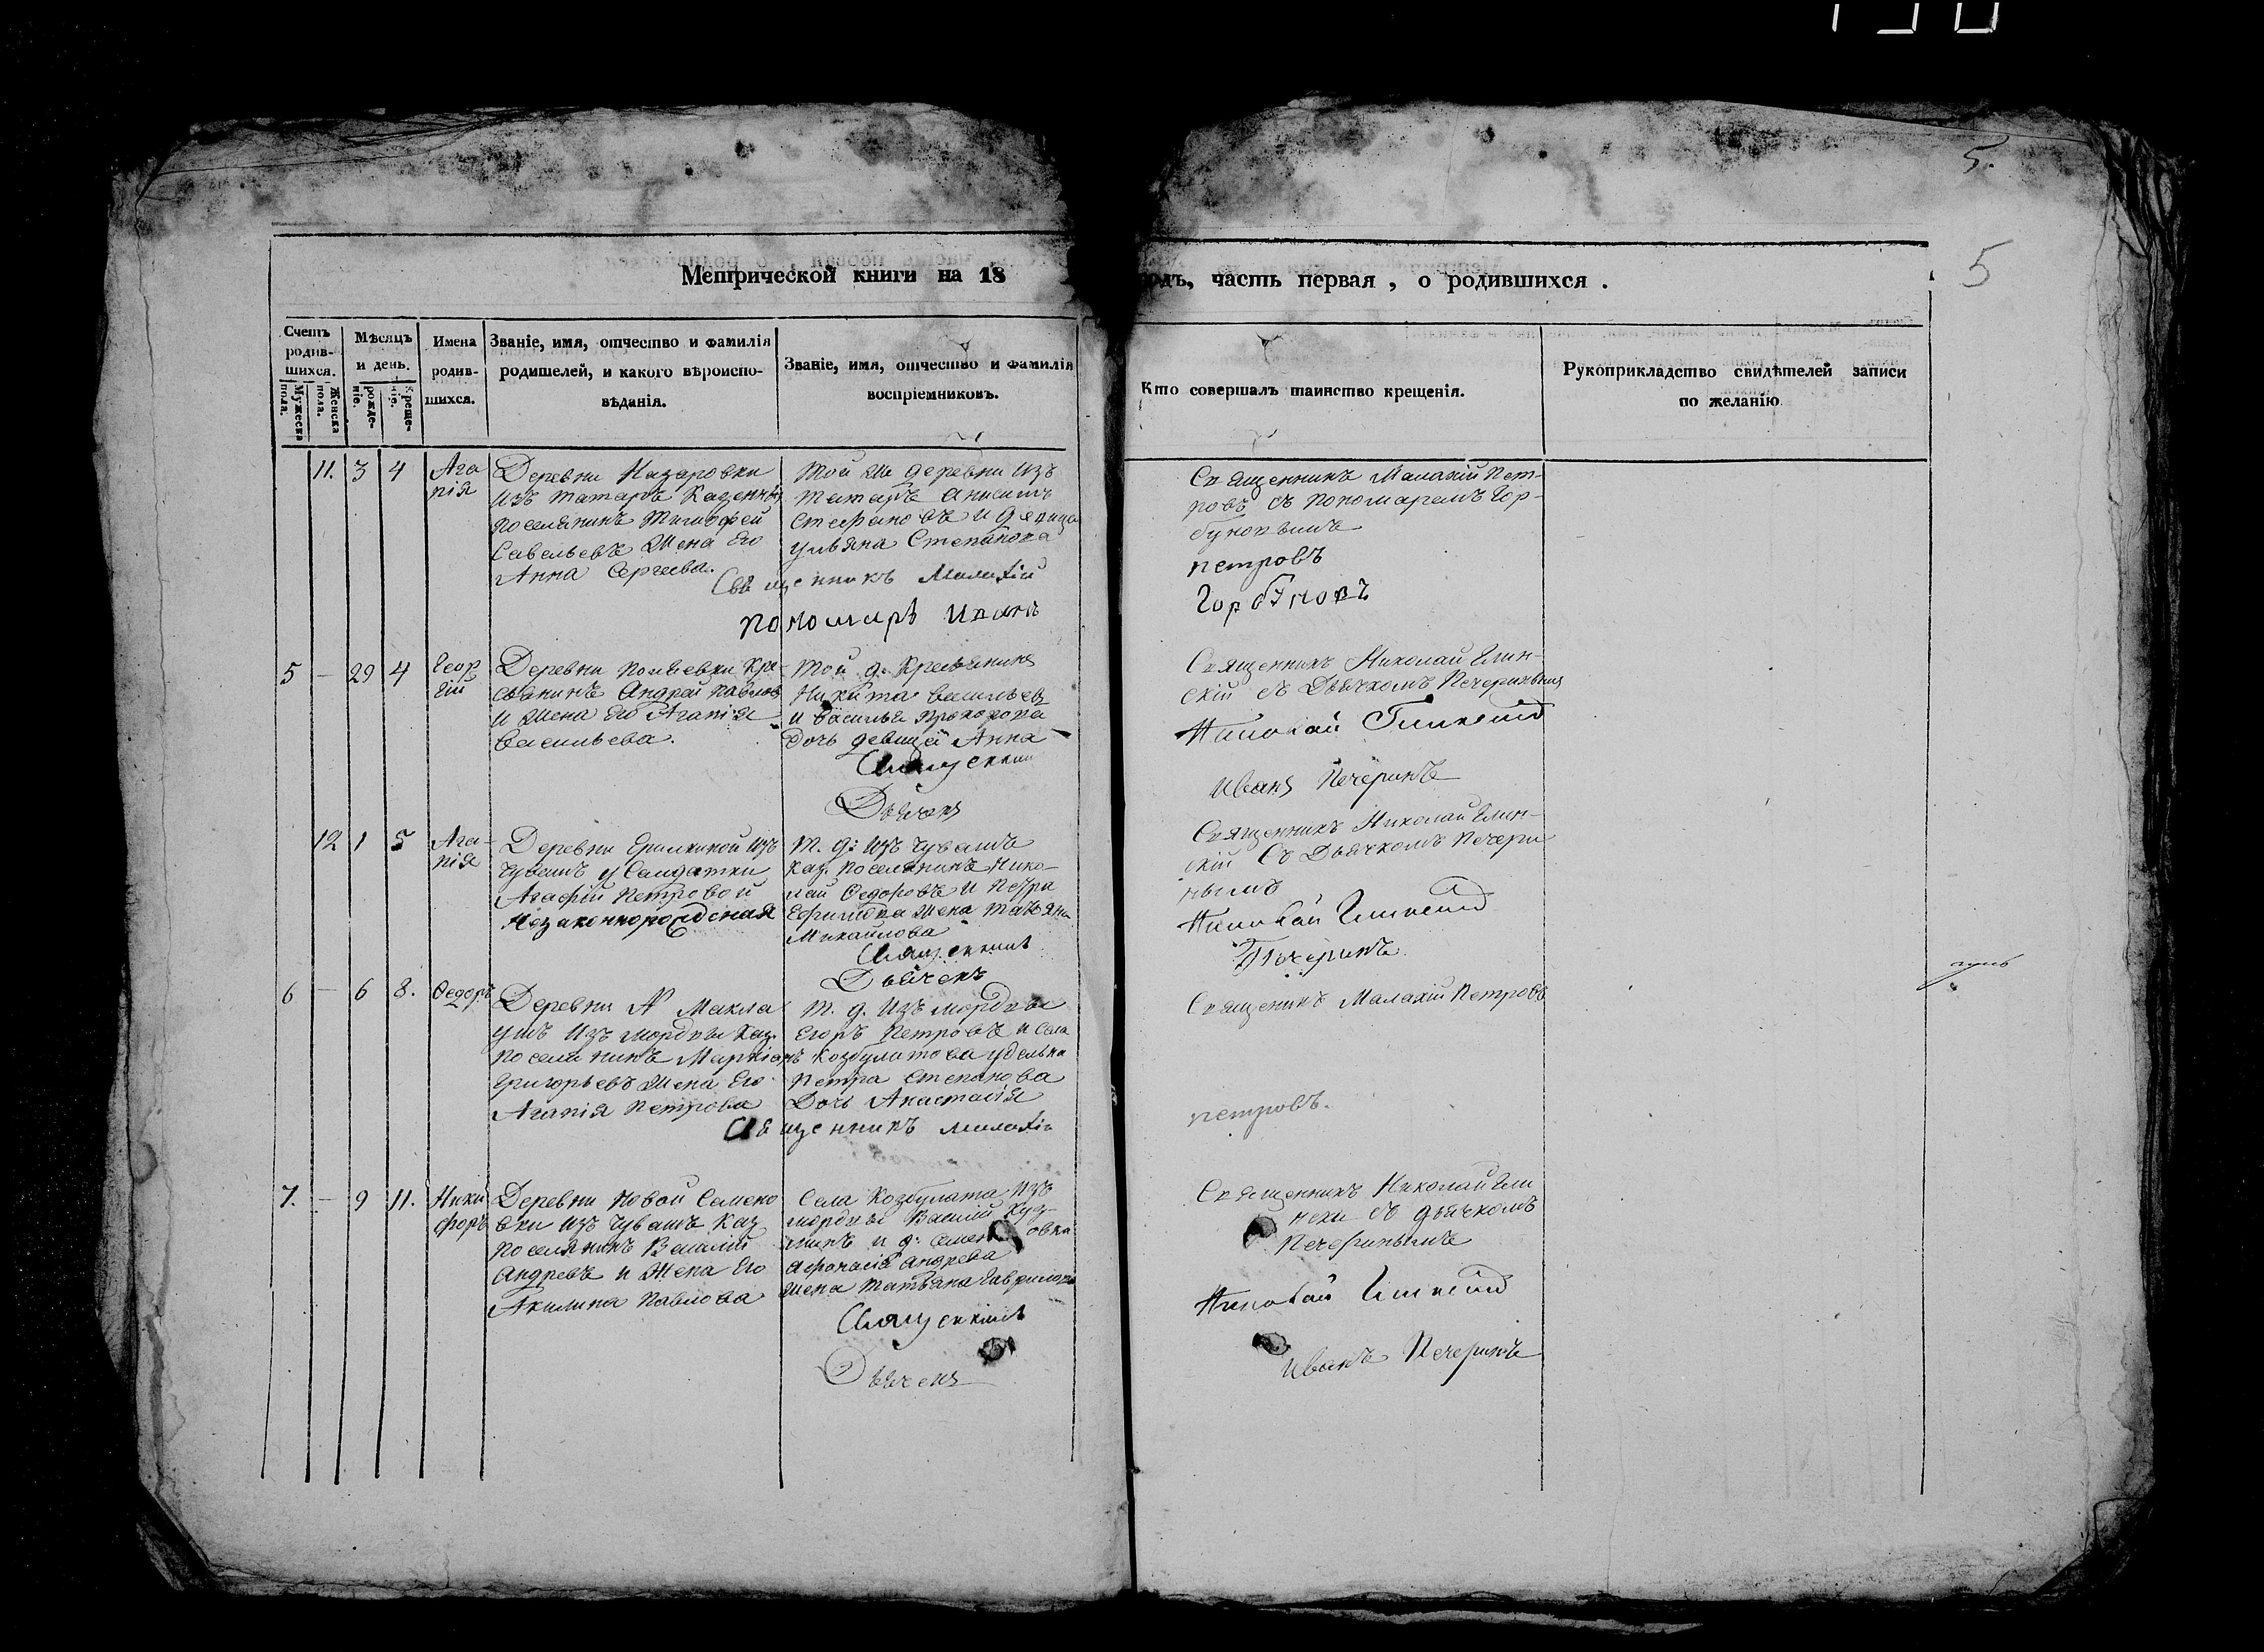 5.
5
Метрической книги на 18
одъ, часть первая, о родившихся.
Счетъ родив-шихся.
Мужеска пола.
Женска пола.
Мѣсяцъ и день.
рожде-ніе.
Креще-ніе.
Имена родив-шихся.
Званіе, имя, отчество и фамилія
родителей, и какого вѣроиспо-
вѣданія.
Званіе, имя, отчество и фамилія
воспріемниковъ.
Кто совершалъ таинство крещенія.
Рукоприкладство свидѣтелей записи
по желанію
11. 3 4
Ага
пія
Деревни Назаровки
изъ татаръ Казенный
поселянинъ Тимофей
Савельевъ Жена Его
Анна Сергеева.
Той же деревни изъ
татаръ Анисимъ
Стефановъ и девица
Ульяна Степанова
Священникъ Малахій
пономарь Иванъ
Священникъ Малахій Пет-
ровъ съ пономаремъ Гор-
буновымъ
петровъ
Горбуновъ
5 — 29 4
Геор
гій
Деревни Кре-
стьянинъ Андрей Павлов
и Жена Его Агапія
Васильева.
Той д. Крестьянинъ
Никита Васильев
и Василья Прохорова
дочь девица Анна
Священникъ
Дьячекъ
Священникъ Николай Глин-
скій съ Дьячкомъ Печеринымъ
Николай Глинскій
Иванъ Печеринъ
12 1 5
Ага-
пія
Деревни Ерилкиной изъ
Чувашъ у Салдатки
Агафіи Петровой
Незаконнорожденная
Т. д: изъ Чувашъ
Каз. поселянинъ Нико-
лай Федоровъ и Петра
Ефимова Жена Татьяна
Михайлова
Священникъ
Дьячекъ
Священникъ Николай Глин-
скій Съ Дьячкомъ Печери
нымъ
Николай Глинскій
Печеринъ
6 — 6 8.
Федоръ
Деревни Н Макла
ушъ изъ мордвы Каз.
поселянинъ Маркіанъ
Григорьевъ Жена Его
Агапія Петрова
Т. д. изъ мордвы
Егоръ Петровъ и села
Козбулатова удельна
Петра Степанова
Дочь Анастасія
Священникъ Малахій
Священникъ Малахій Петровъ
петровъ.
7. — 9 11.
Ники
форъ
Деревни Новой Семено
вки изъ Чувашъ Каз
поселянинъ Василій
Андревъ и Жена Его
Акилина Павлова
Села Козбулата изъ
мордвы Василій Куз-
минъ и д: Семеновки
Афонасія Андрева
жена Татьяна Гаврилова
Священникъ
Дьячекъ
Священникъ Николай Гли
нски съ дьячкомъ
Печеринымъ
Николай Глинскій
Иванъ Печеринъ